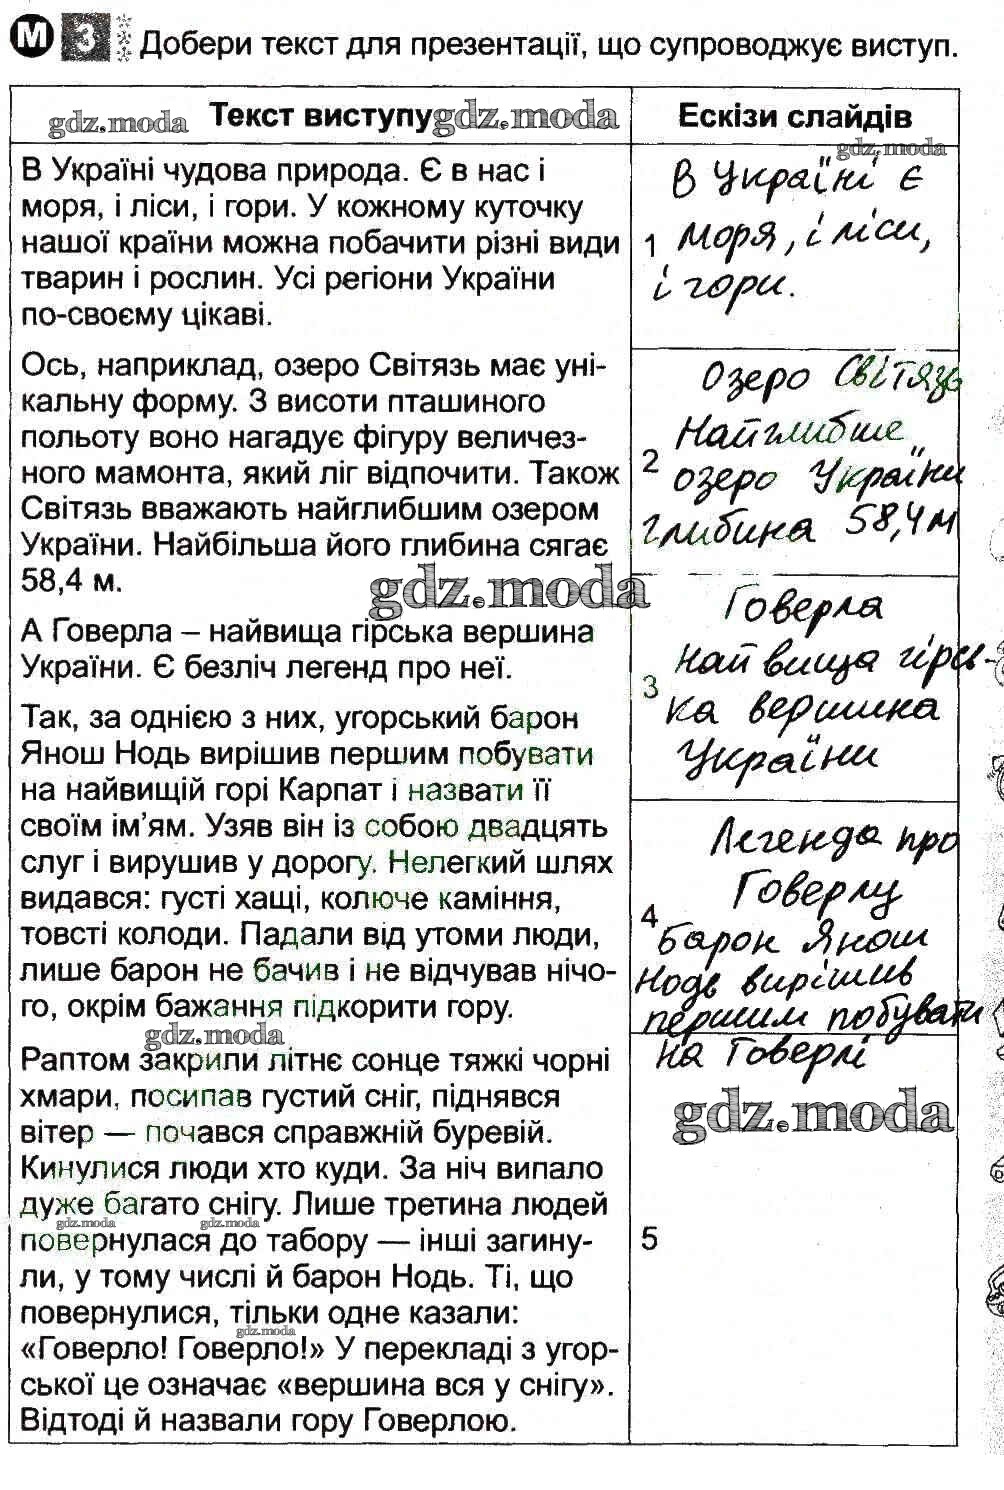 М 3 Добери текст для презентації, що супроводжує виступ.
gdz.moda Текст виступу gdz.moda
Ескізи слайдів
gdz.moda
В Україні чудова природа. Є в нас і
моря, і ліси, і гори. У кожному куточку
нашої країни можна побачити різні види
тварин і рослин. Усі регіони України
по-своєму цікаві.
В Україні є
1 моря, і ліси,
і гори.
Ось, наприклад, озеро Світязь має уні-
кальну форму. З висоти пташиного
польоту воно нагадує фігуру величез-
ного мамонта, який ліг відпочити. Також
Світязь вважають найглибшим озером
України. Найбільша його глибина сягає
58,4 м.
gdz.moda
Озеро Світязь
Найглибше
2 озеро України
глибина 58,4 м
А Говерла – найвища гірська вершина
України. Є безліч легенд про неї.
Говерла
найвища гірсь-
3 ка вершина
України
Так, за однією з них, угорський барон
Янош Нодь вирішив першим побувати
на найвищій горі Карпат і назвати її
своїм ім’ям. Узяв він із собою двадцять
слуг і вирушив у дорогу. Нелегкий шлях
видався: густі хащі, колюче каміння,
товсті колоди. Падали від утоми люди,
лише барон не бачив і не відчував нічо-
го, окрім бажання підкорити гору.
gdz.moda
Легенда про
Говерлу
4 Барон Янош
Нодь вирішив
першим побувати
на Говерлі
gdz.moda
Раптом закрили літнє сонце тяжкі чорні
хмари, посипав густий сніг, піднявся
вітер — почався справжній буревій.
Кинулися люди хто куди. За ніч випало
дуже багато снігу. Лише третина людей
gdz.moda gdz.moda
повернулася до табору — інші загину-
ли, у тому числі й барон Нодь. Ті, що
повернулися, тільки одне казали:
gdz.moda
«Говерло! Говерло!» У перекладі з угор-
ської це означає «вершина вся у снігу».
Відтоді й назвали гору Говерлою.
5